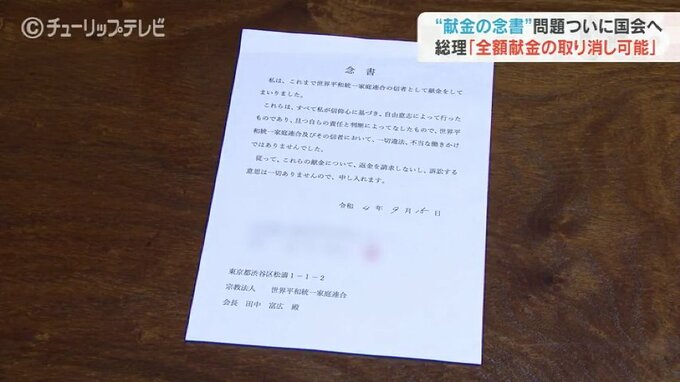 ©チューリップテレビ
“献金の念書”問題ついに国会へ
総理「全額献金の取り消し可能」
念書
私は、これまで世界平和統一家庭連合の信者として献金をして
まいりました。
これらは、すべて私が信仰心に基づき、自由意志によって行った
ものであり、且つ自らの責任と判断によってなしたもので、世界平
和統一家庭連合及びその信者において、一切違法、不当な働きかけ
ではありませんでした。
従って、これらの献金について、返金を請求しないし、訴訟する
意思は一切ありませんので、申し入れます。
令和 4 年 9 月 15 日
東京都渋谷区松濤1-1-2
宗教法人 世界平和統一家庭連合
会長 田中 富広 殿